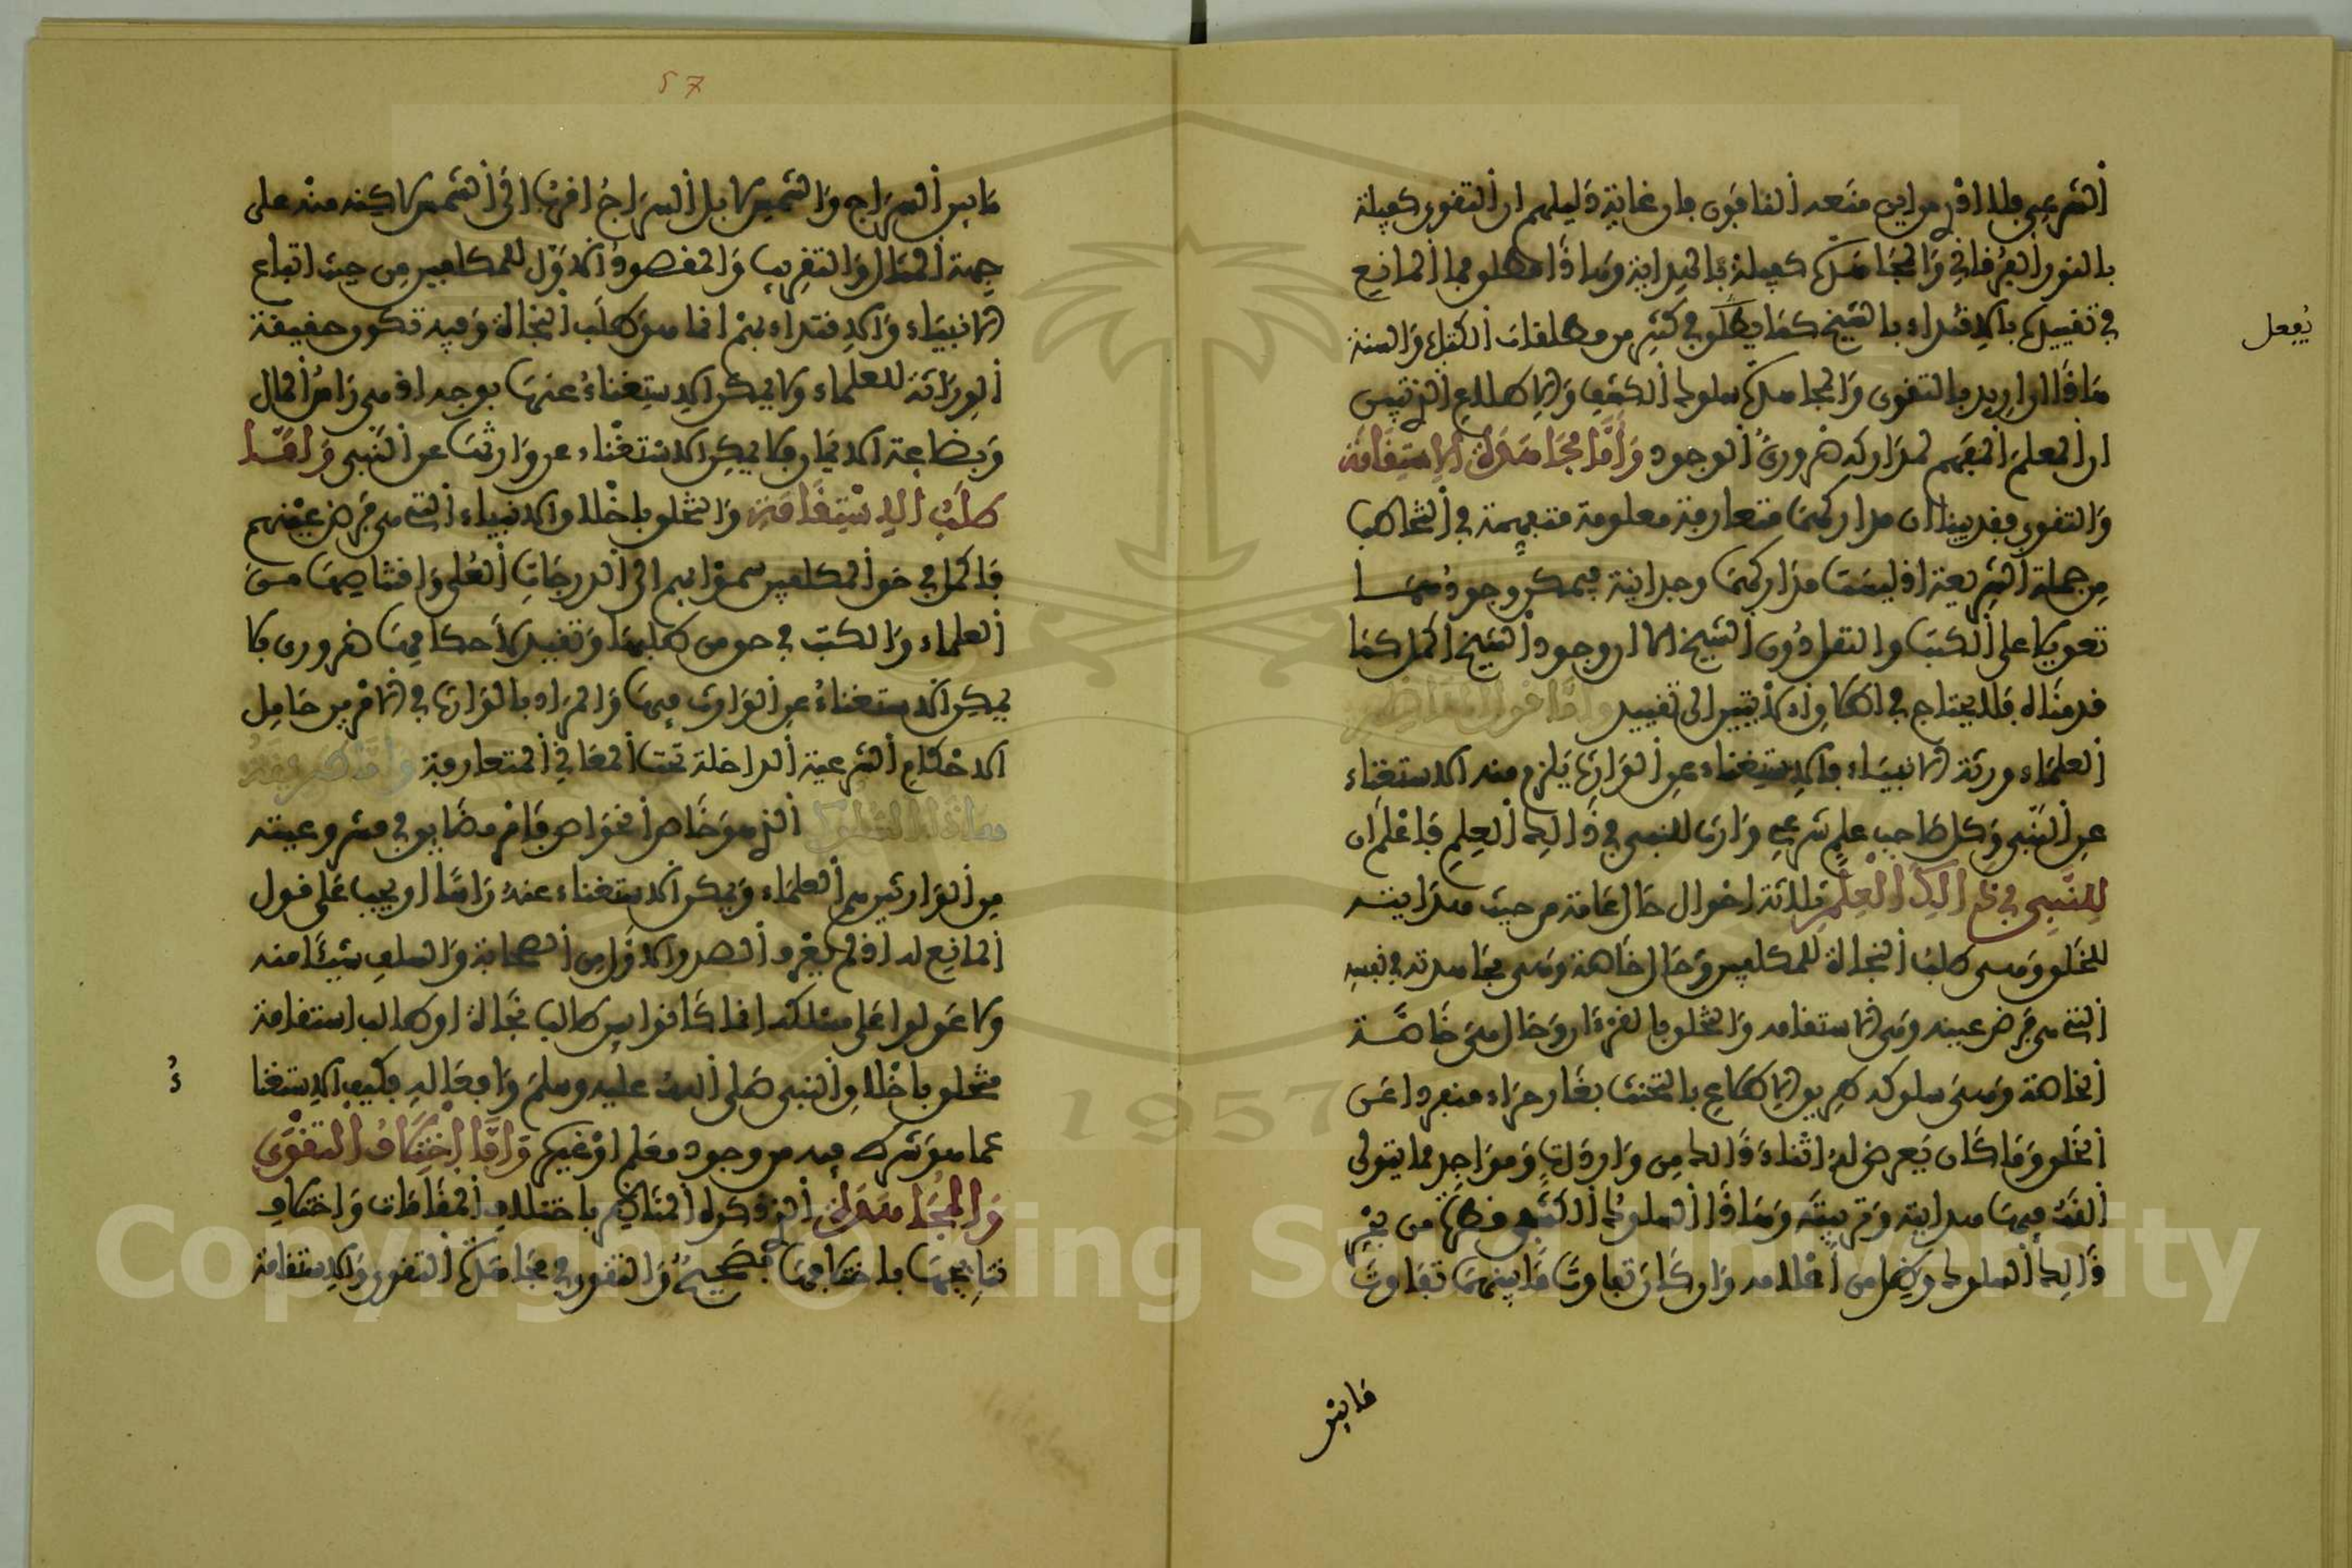 الشرعي فلا اذن من اين منعه المانعون فان غاية دليلهم ان التقوى كفيلة
بالنور الفرقاني والمجاهدة كفيلة بالهداية وهاذا مطلو فما المانع
في تقييدها بالاقتداء بالشيخ كما يطلو في كثير من مطلقات الكتاب والسنة
يفعل
هاذا ان اريد بالتقوى والمجاهدة سلوك الكشف والاطلاع الذي تبين
ان المعلم المفهم لمداركه ضروري الوجود واما مجاهدة الاستقامة
والتقوى فقد بينا ان مداركهما متعارفة معلومة متفهمة في التخاطب
من جملة الشريعة اذ ليست مداركهما وجدانية فيمكن وجودهما
تعويلا على الكتب والنقل دون الشيخ الا ان وجود الشيخ اكمل كما
قدمناه فلا يحتاج في الاولتين الى تقييد واما قول المناظر
العلماء ورثة الانبياء فالاستغناء عن الوارث يلزم منه الاستغناء
عن النبي وكل صاحب علم شرعي وارث للنبي في ذالك العلم فاعلم ان
للنبي في ذالك العلم ثلاثة احوال حال عامة من حيث هدايته
للخلو وهي طلب النجاة للمكلفين وحال خاصة وهي مجاهدته في نفسه
التي هي فرض عينه وهي الاستقامة والتخلو بالقرءان وحال هي خاصة
الخاصة وهي سلوكه طريق الاطلاع بالتحنث بغار حراء منفردا عن
الخلو وما كان يعرض له اثناء ذالك من واردات ومواجد مما يتولى
الله فيها هدايته وتربيته وهاذا السلوك الكشفي وظهر من بحر
ذالك السلوك وظل من اظلاله وان كان تفاوت ما بينهما تفاوت
ما بين
57
ما بين السراج والشمس لا بل السراج اقرب الى الشمس لاكنه منه على
جهة المثال والتقريب والمقصود الاول للمكلفين من حيث اتباع
الانبياء والاقتداء بهم انما هو طلب النجاة وفيه تكون حقيقة
الوراثة للعلماء ولا يمكن الاستغناء عنها بوجه اذ هي راس المال
وبضاعة الايمان فلا يمكن الاستغناء عن وارثها عن النبي واما
طلب الاستقامة والتخلو باخلاو الانبياء التي هي فرض عينهم
فاكمل في حو المكلفين سموا بهم الى الدرجات العلى واقتناصها من
العلماء والكتب في حو من طلبها وتقييد لاحكامها ضروري فلا
يمكن الاستغناء عن الوارث فيها والمراد بالوارث في الامرين حامل
الاحكام الشرعية الداخلة تحت المعاني المتعارفة واما طريقة
هاذا السلوك الذي هو خاص الخواص فامر مضايو في مشروعيته
من الوارثين من العلماء ويمكن الاستغناء عنه راسا او يجب على قول
المانع له اذ لم يغرو الصدر الاول من الصحابة والسلف شيئا منه
ولا عولوا على مسلكه انما كانوا بين طالب نجاة او طالب استقامة
متخلو باخلاو النبي صلى الله عليه وسلم وافعاله فكيف الاستغنا
ءُ
عما هو شرط فيه من وجود معلم او غيره واما اختلاف التقوى
والمجاهدة الذي ذكره المناظر باختلاف المقامات واختلاف
نتائجها باختلافها فصحيح والتقوى في مجاهدة التقوى والاستقامة